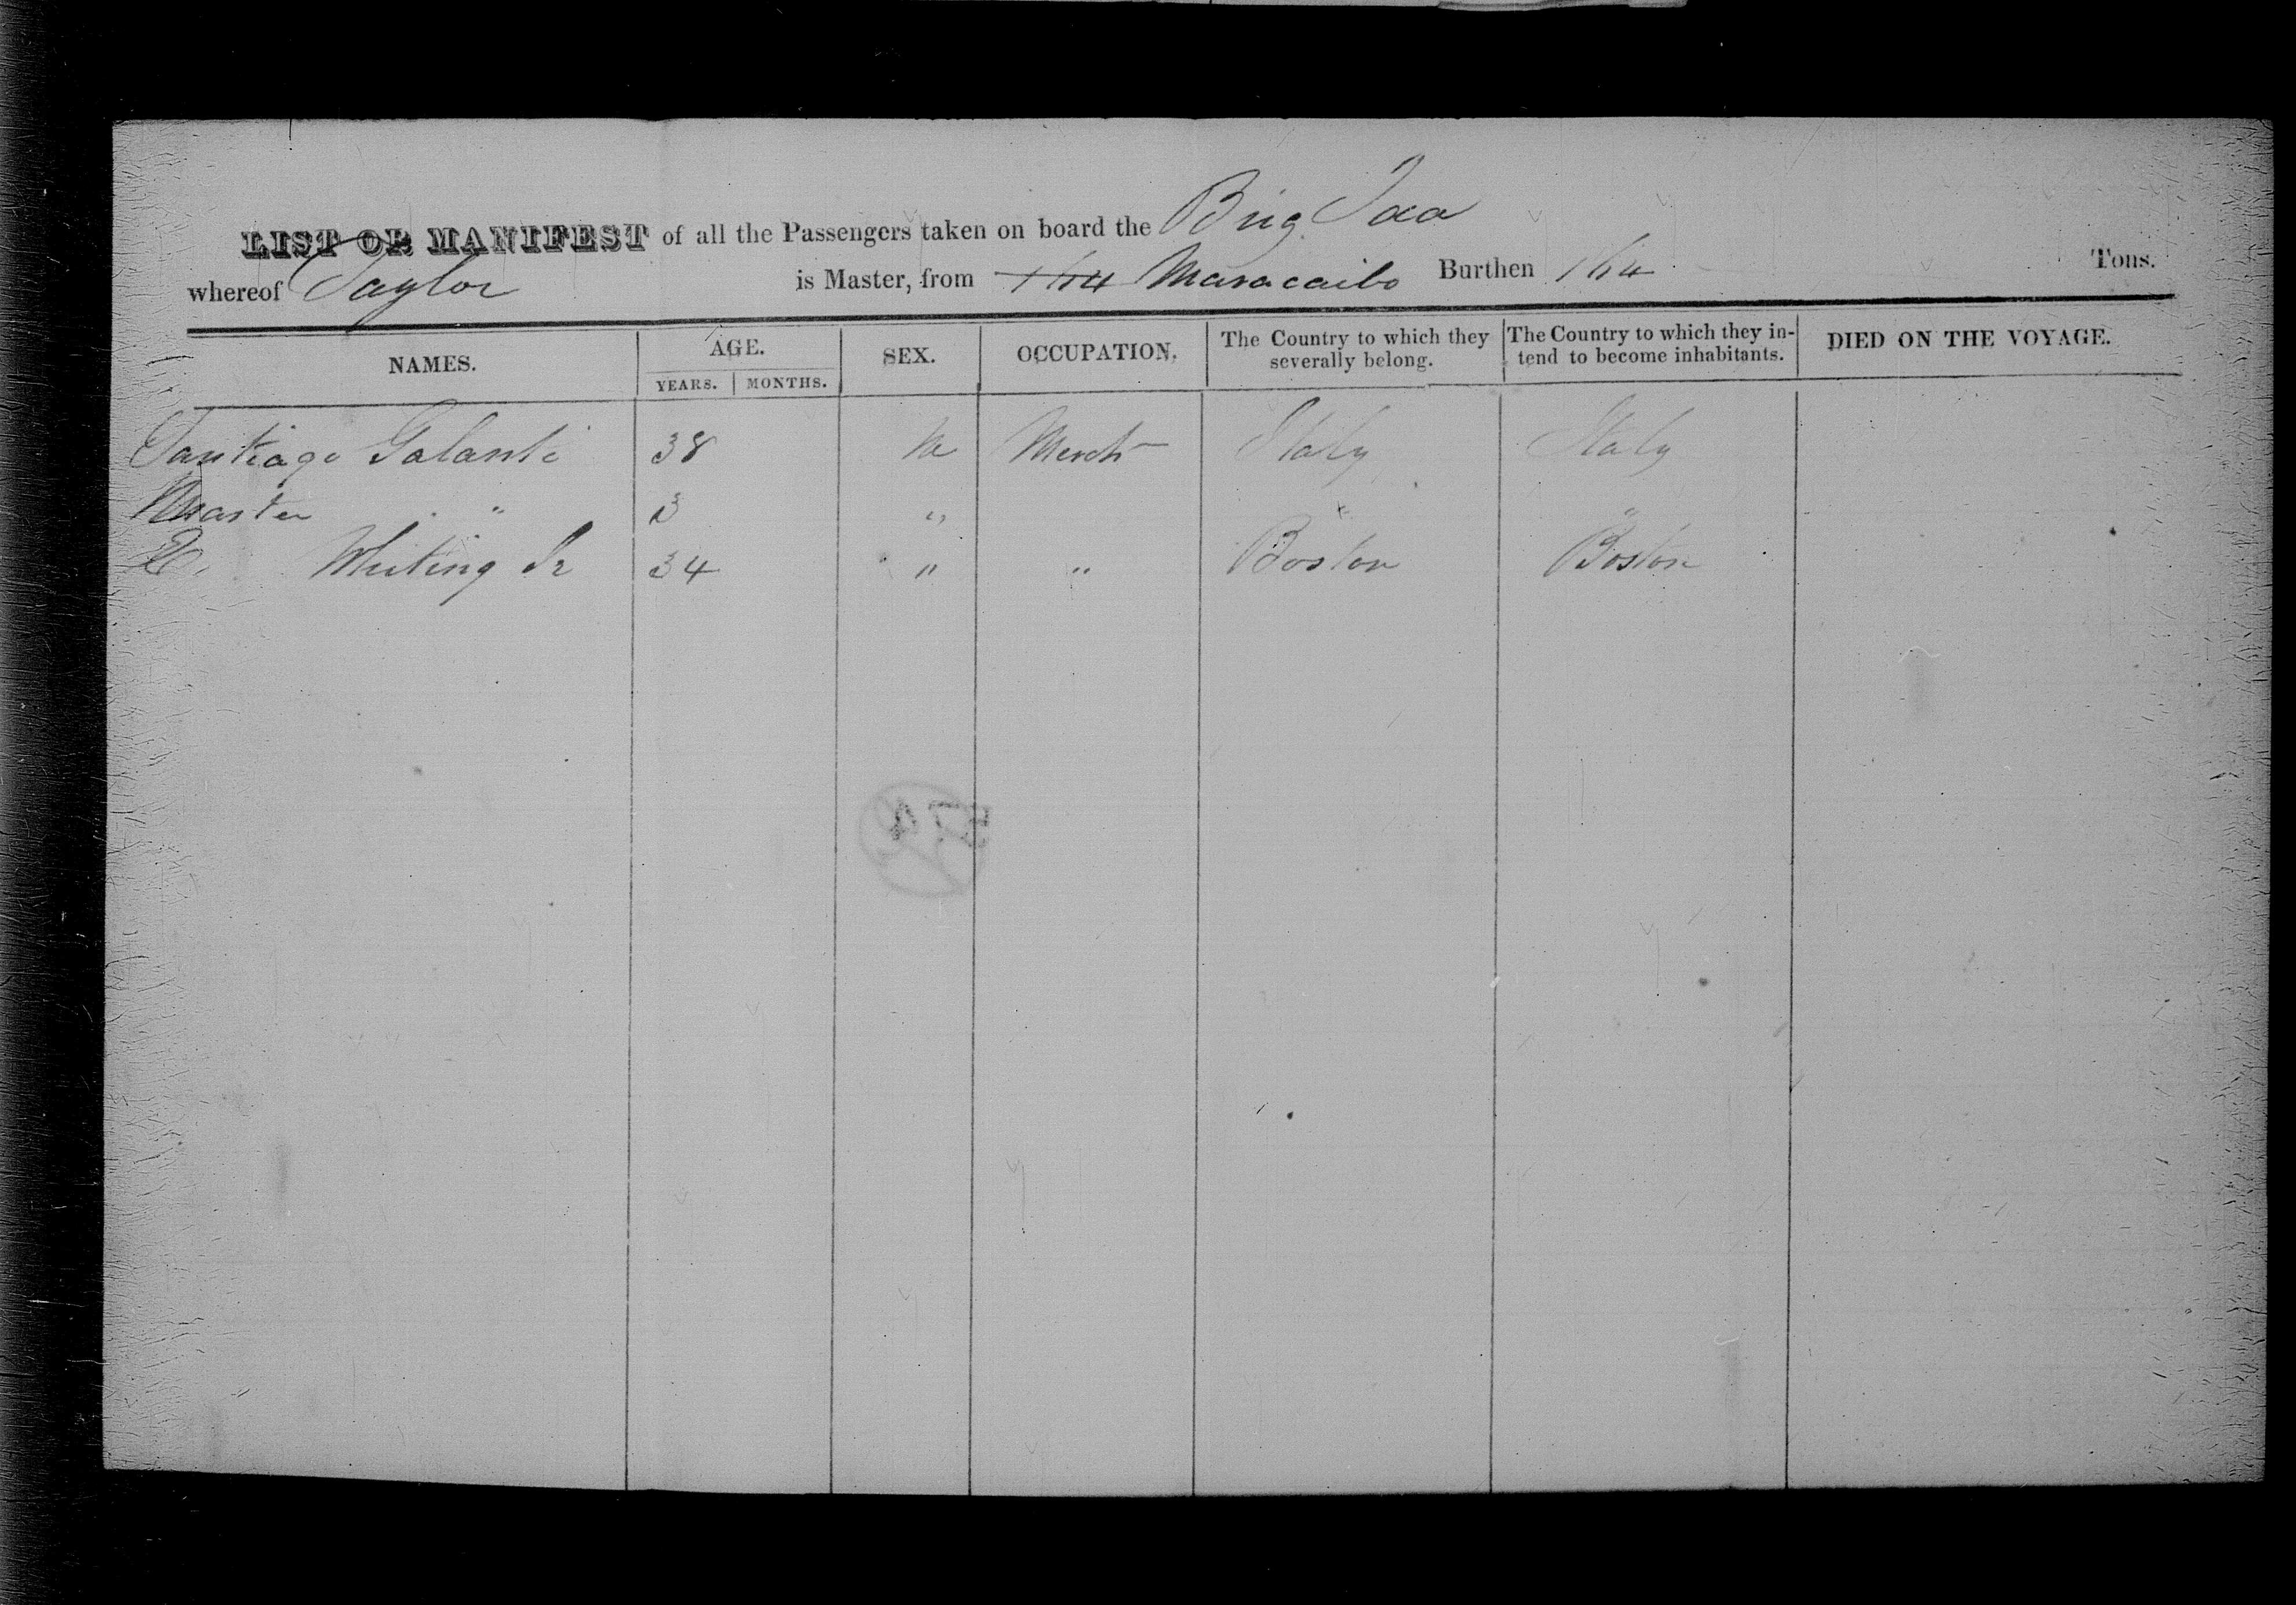 LIST OR MANIFEST of all the Passengers taken on board the Brig
whereof Taylor is Master, from Maracaibo Burthen 164 Tons.
NAMES. AGE. YEARS. MONTHS. SEX. OCCUPATION. The Country to which they severally belong. The Country to which they intend to become inhabitants. DIED ON THE VOYAGE.
Santiago Galanti 38 M Mercht Italy Italy
Master " 3 " " "
Whiting Jr 34 " " Boston Boston